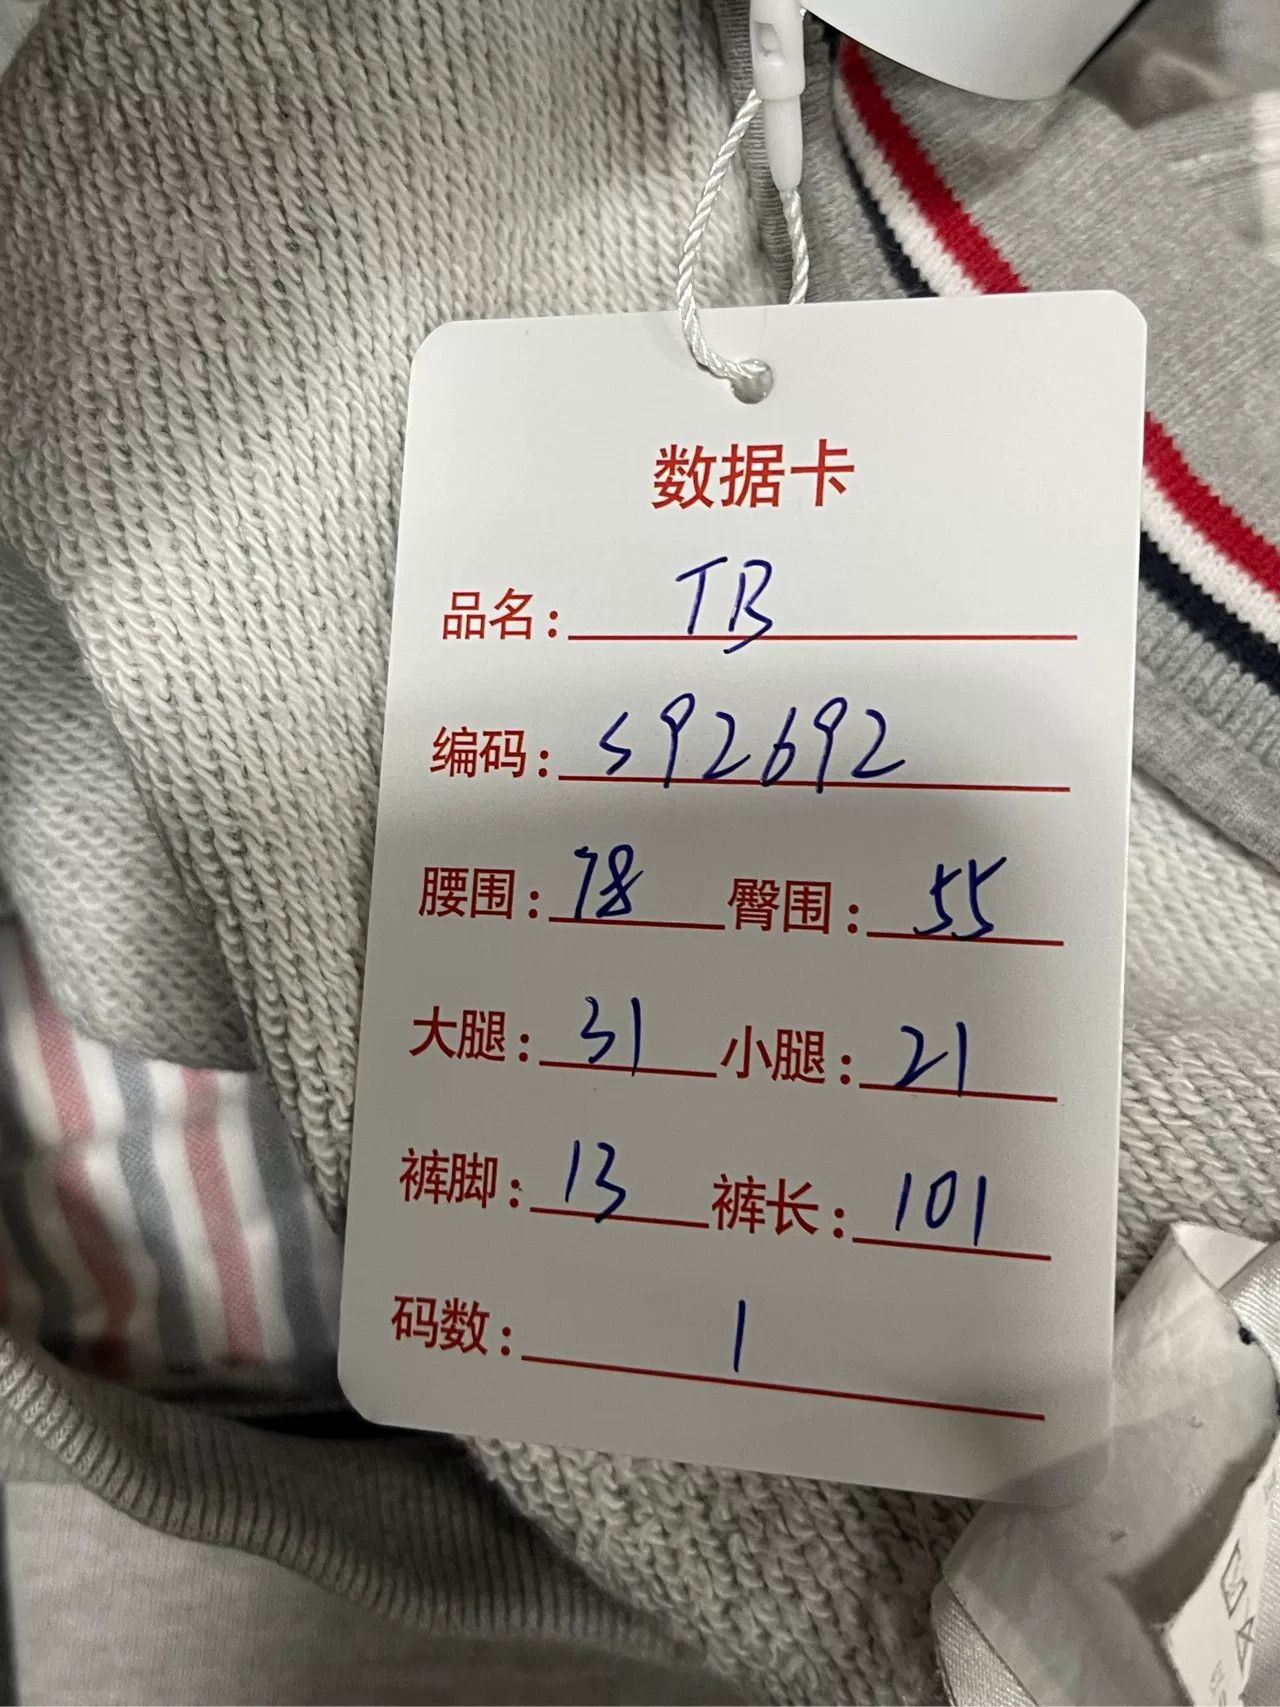 数据卡
品名: TB
编码: S92692
腰围: 78 臀围: 55
大腿: 31 小腿: 21
裤脚: 13 裤长: 101
码数: 1